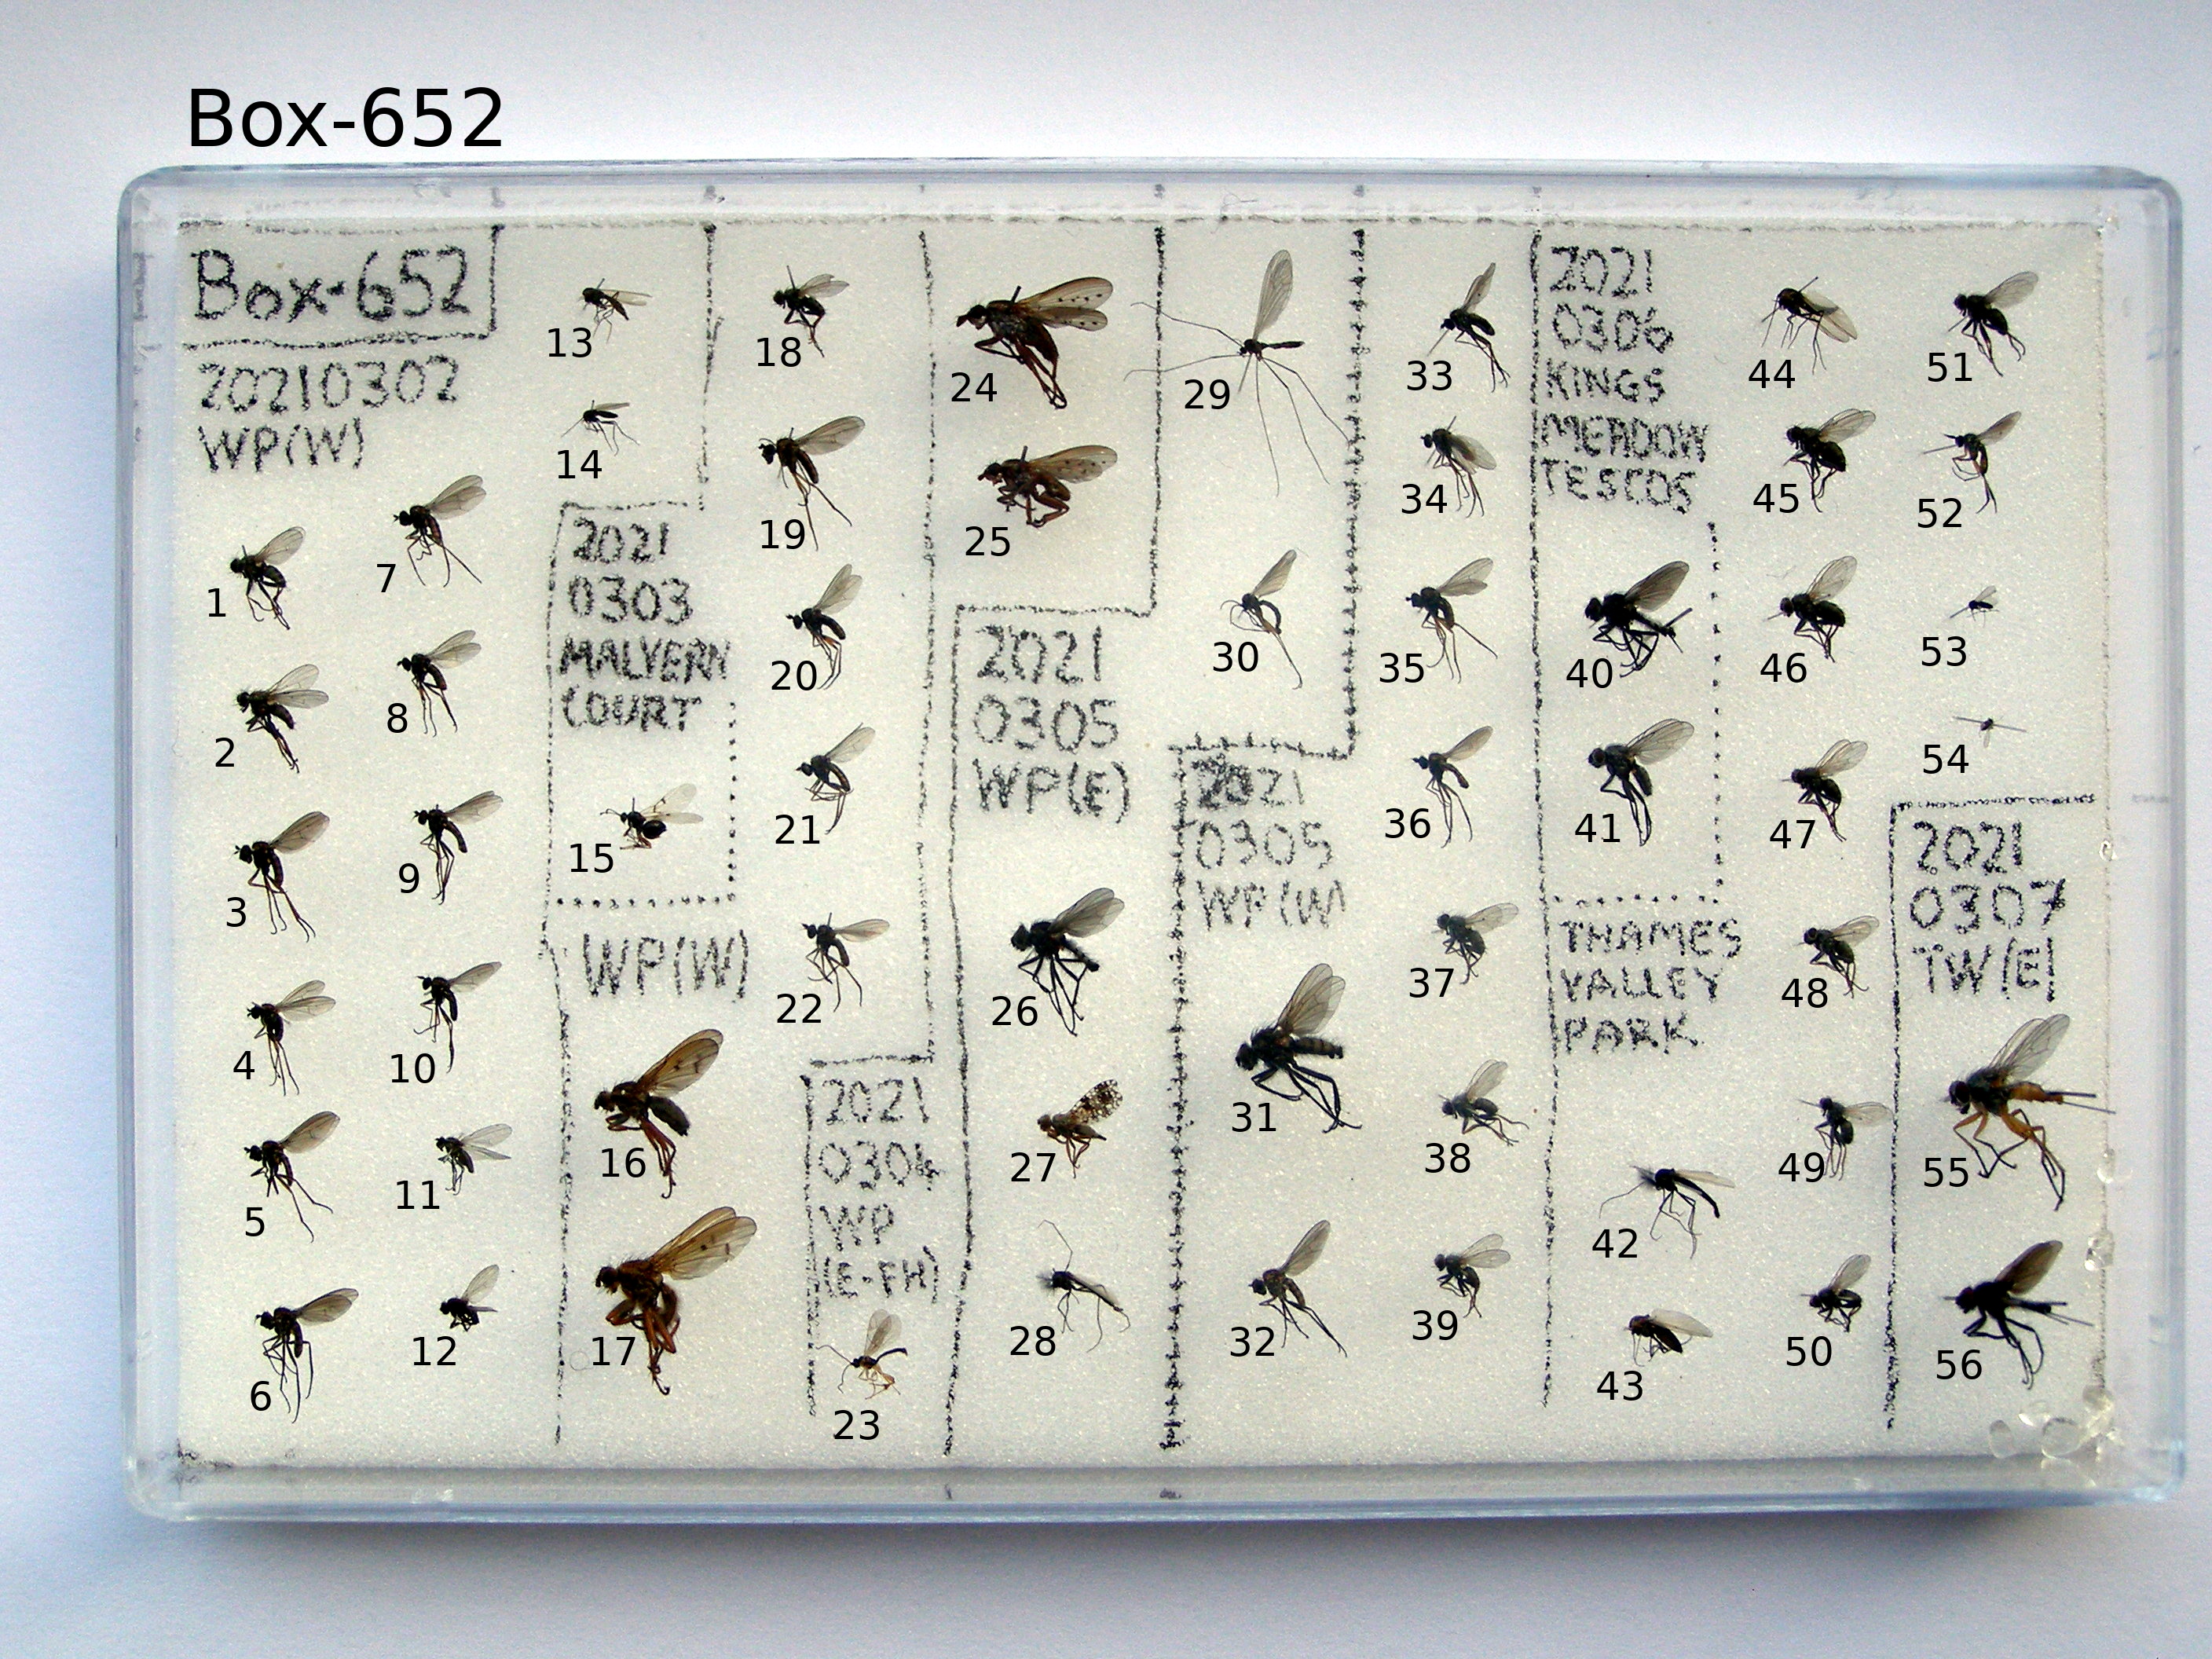 Box-652
Box-652
20210302
WP(W)
1
2
3
4
5
6
7
8
9
10
11
12
13
14
2021
0303
MALVERN
COURT
15
WP(W)
16
17
18
19
20
21
22
2021
0304
WP
(E-FH)
23
24
25
2021
0305
WP(E)
26
27
28
29
30
2021
0305
WP(W)
31
32
33
34
35
36
37
38
39
2021
0306
KINGS
MEADOW
TESCOS
40
41
THAMES
VALLEY
PARK
42
43
44
45
46
47
48
49
50
51
52
53
54
2021
0307
TW(E)
55
56